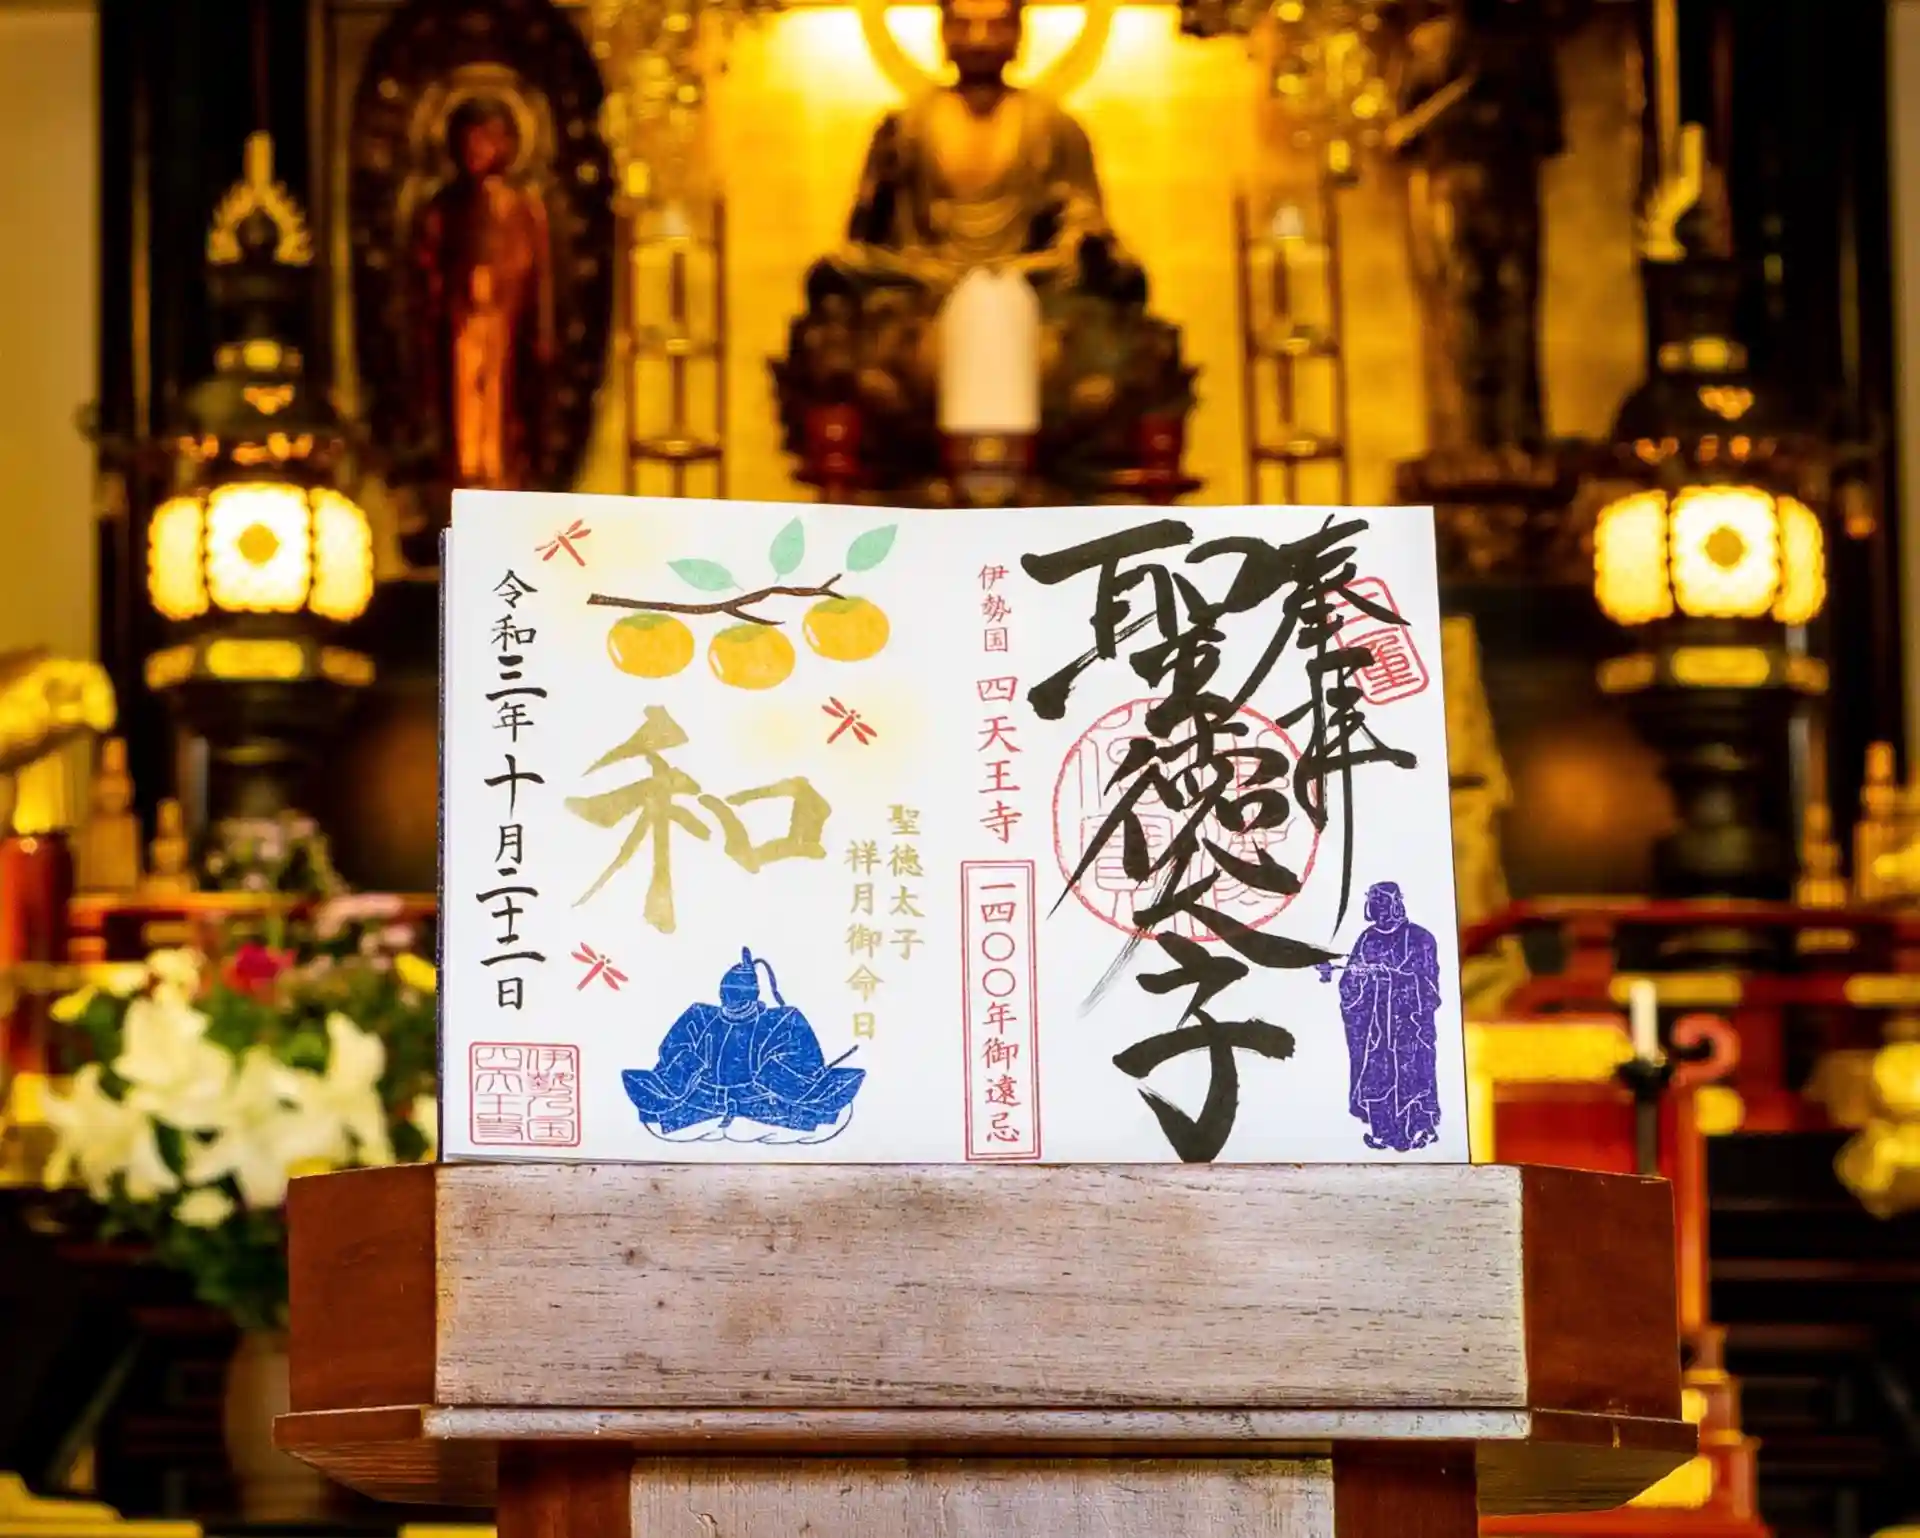 奉拝
聖徳太子
伊勢国 四天王寺
一四〇〇年御遠忌
三重
聖徳太子
祥月御命日
和
令和三年十月二十二日
伊勢乃国
四天王寺